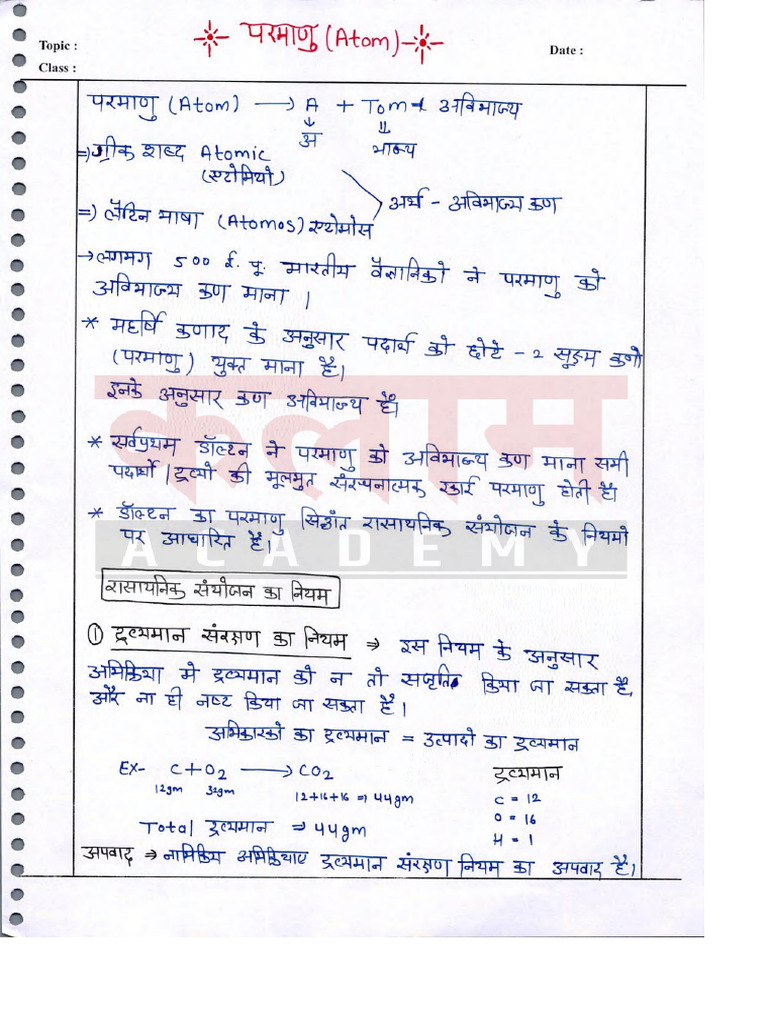 परमाणु (Atom)
Topic :
Date :
Class :
परमाणु (Atom) → A + Tom अविभाज्य
↓ ⇓
अ भाज्य
⇒ ग्रीक शब्द Atomic
(एटोमियो)
अर्थ - अविभाज्य कण
⇒ लैटिन भाषा (Atomos) एटोमोस
→ लगभग 500 ई. पू. भारतीय वैज्ञानिको ने परमाणु को
अविभाज्य कण माना ।
* महर्षि कणाद के अनुसार पदार्थ को छोटे - 2 सूक्ष्म कणो
(परमाणु) युक्त माना है।
इनके अनुसार कण अविभाज्य है।
कलाम
* सर्वप्रथम डॉल्टन ने परमाणु को अविभाज्य कण माना सभी
पदार्थो / द्रव्यो की मूलभुत संरचनात्मक इकाई परमाणु होती है।
* डॉल्टन का परमाणु सिद्धांत रासायनिक संयोजन के नियमो
पर आधारित है।
ACADEMY
रासायनिक संयोजन का नियम
① द्रव्यमान संरक्षण का नियम ⇒ इस नियम के अनुसार
अभिक्रिया मे द्रव्यमान को न तो किया जा सकता है,
और ना ही नष्ट किया जा सकता है।
अभिकारको का द्रव्यमान = उत्पादो का द्रव्यमान
Ex- C + O2 → CO2 द्रव्यमान
12gm 32gm 12+16+16 ⇒ 44gm C = 12
O = 16
Total द्रव्यमान ⇒ 44gm H = 1
अपवाद ⇒ नाभिकिय अभिक्रियाए द्रव्यमान संरक्षण नियम का अपवाद है।